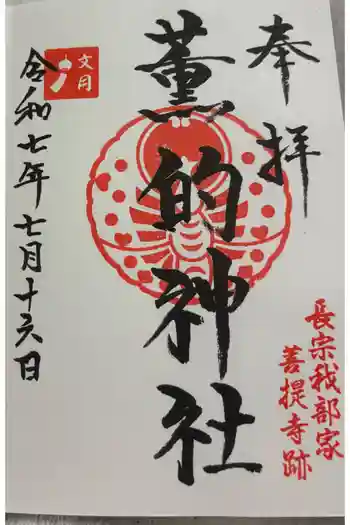 奉拝
長宗我部家
菩提寺跡
薫的神社
文月
令和七年七月十六日